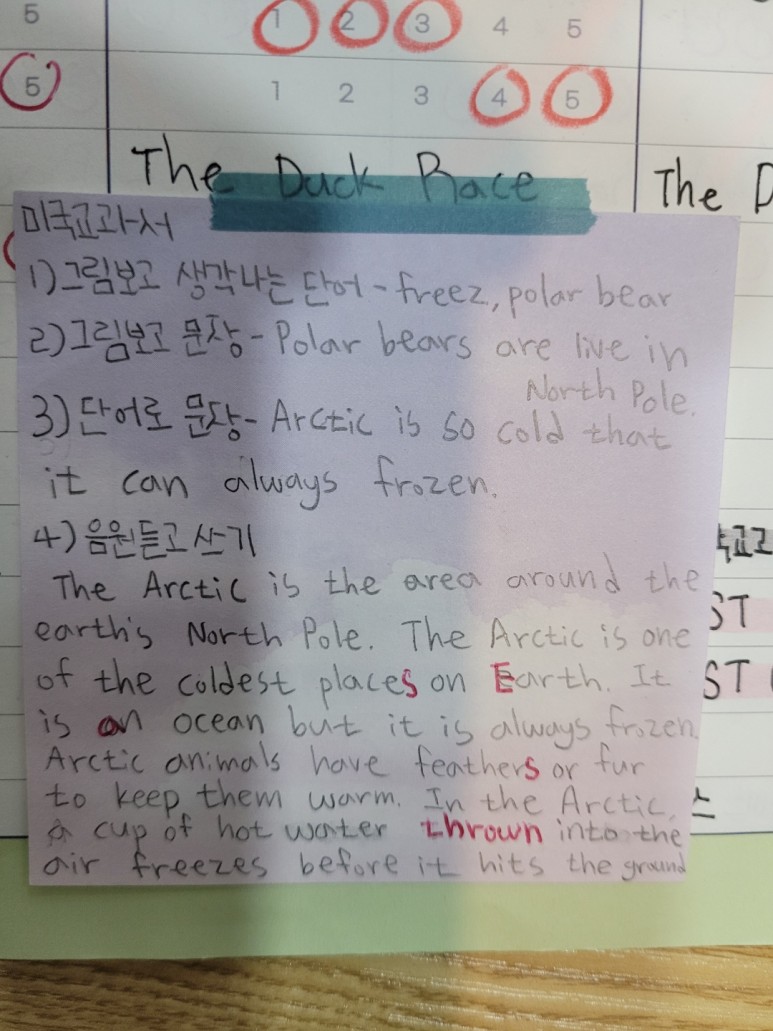 5 1 2 3 4 5
5 1 2 3 4 5
The Duck Race
The D
미국교과서
1) 그림보고 생각나는 단어 - freez, polar bear
2) 그림보고 문장 - Polar bears are live in
North Pole.
3) 단어로 문장 - Arctic is so cold that
it can always frozen.
4) 음원듣고 쓰기
The Arctic is the area around the
earth's North Pole. The Arctic is one
of the coldest places on Earth. It
is an ocean but it is always frozen.
Arctic animals have feathers or fur
to keep them warm. In the Arctic,
a cup of hot water thrown into the
air freezes before it hits the ground
ST
ST